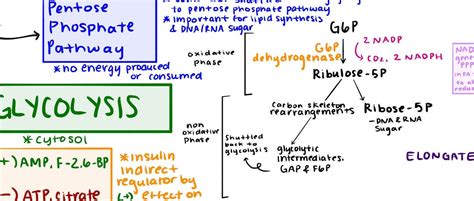 to pentose phosphate pathway
*important for lipid synthesis
& DNA/RNA Sugar
Pentose
Phosphate
Pathway
*no energy produced
or consumed
oxidative
phase
G6P
G6P
dehydrogenase
2 NADP
CO2, 2 NADPH
Ribulose-5P
non
oxidative
phase
Carbon skeleton
rearrangements
Ribose-5P
-DNA&RNA
Sugar
Shuttled
back to
glycolysis
glycolytic
intermediates,
GAP & F6P
GLYCOLYSIS
*cytosol
(+) AMP, F-2,6-BP
(-) ATP, citrate
*insulin
indirect
regulator by
effect on
(+)
NAD
ELONGATE